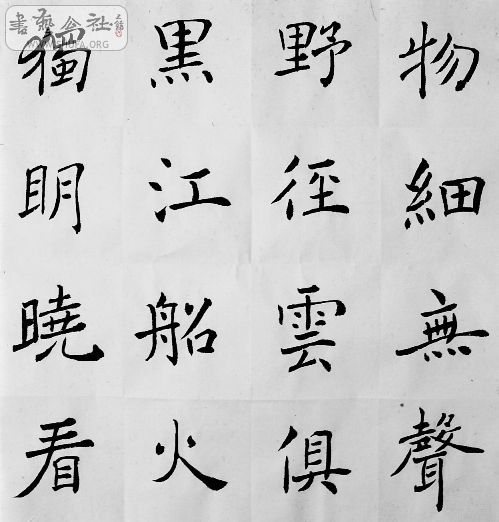 物細無聲
野徑雲俱
黑江船火
獨眀曉看
書藝公社